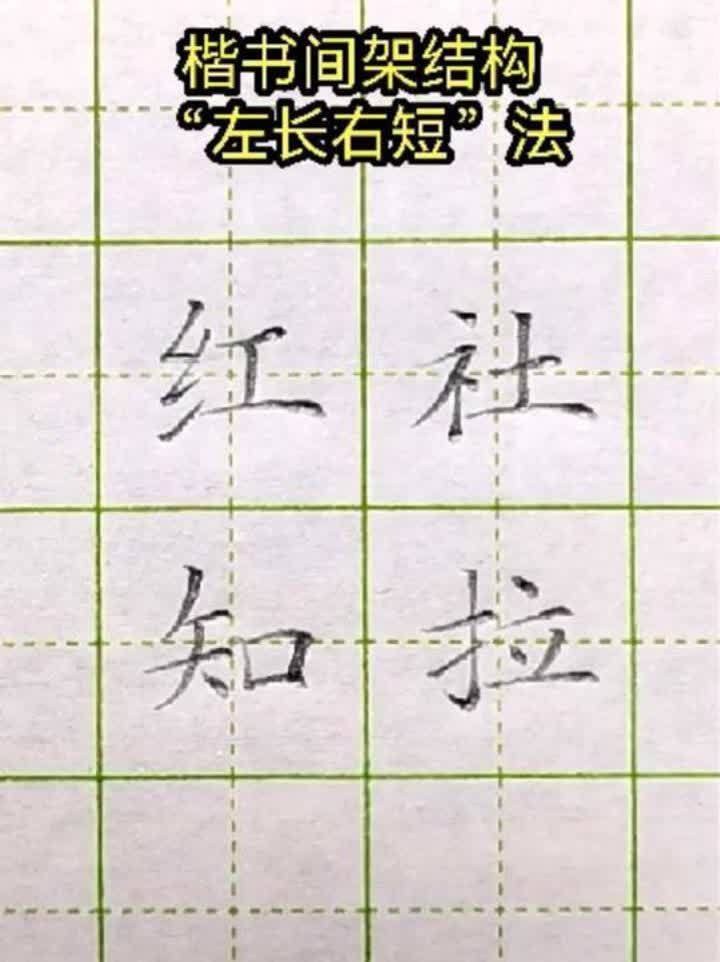 楷书间架结构
“左长右短”法
红社
知拉